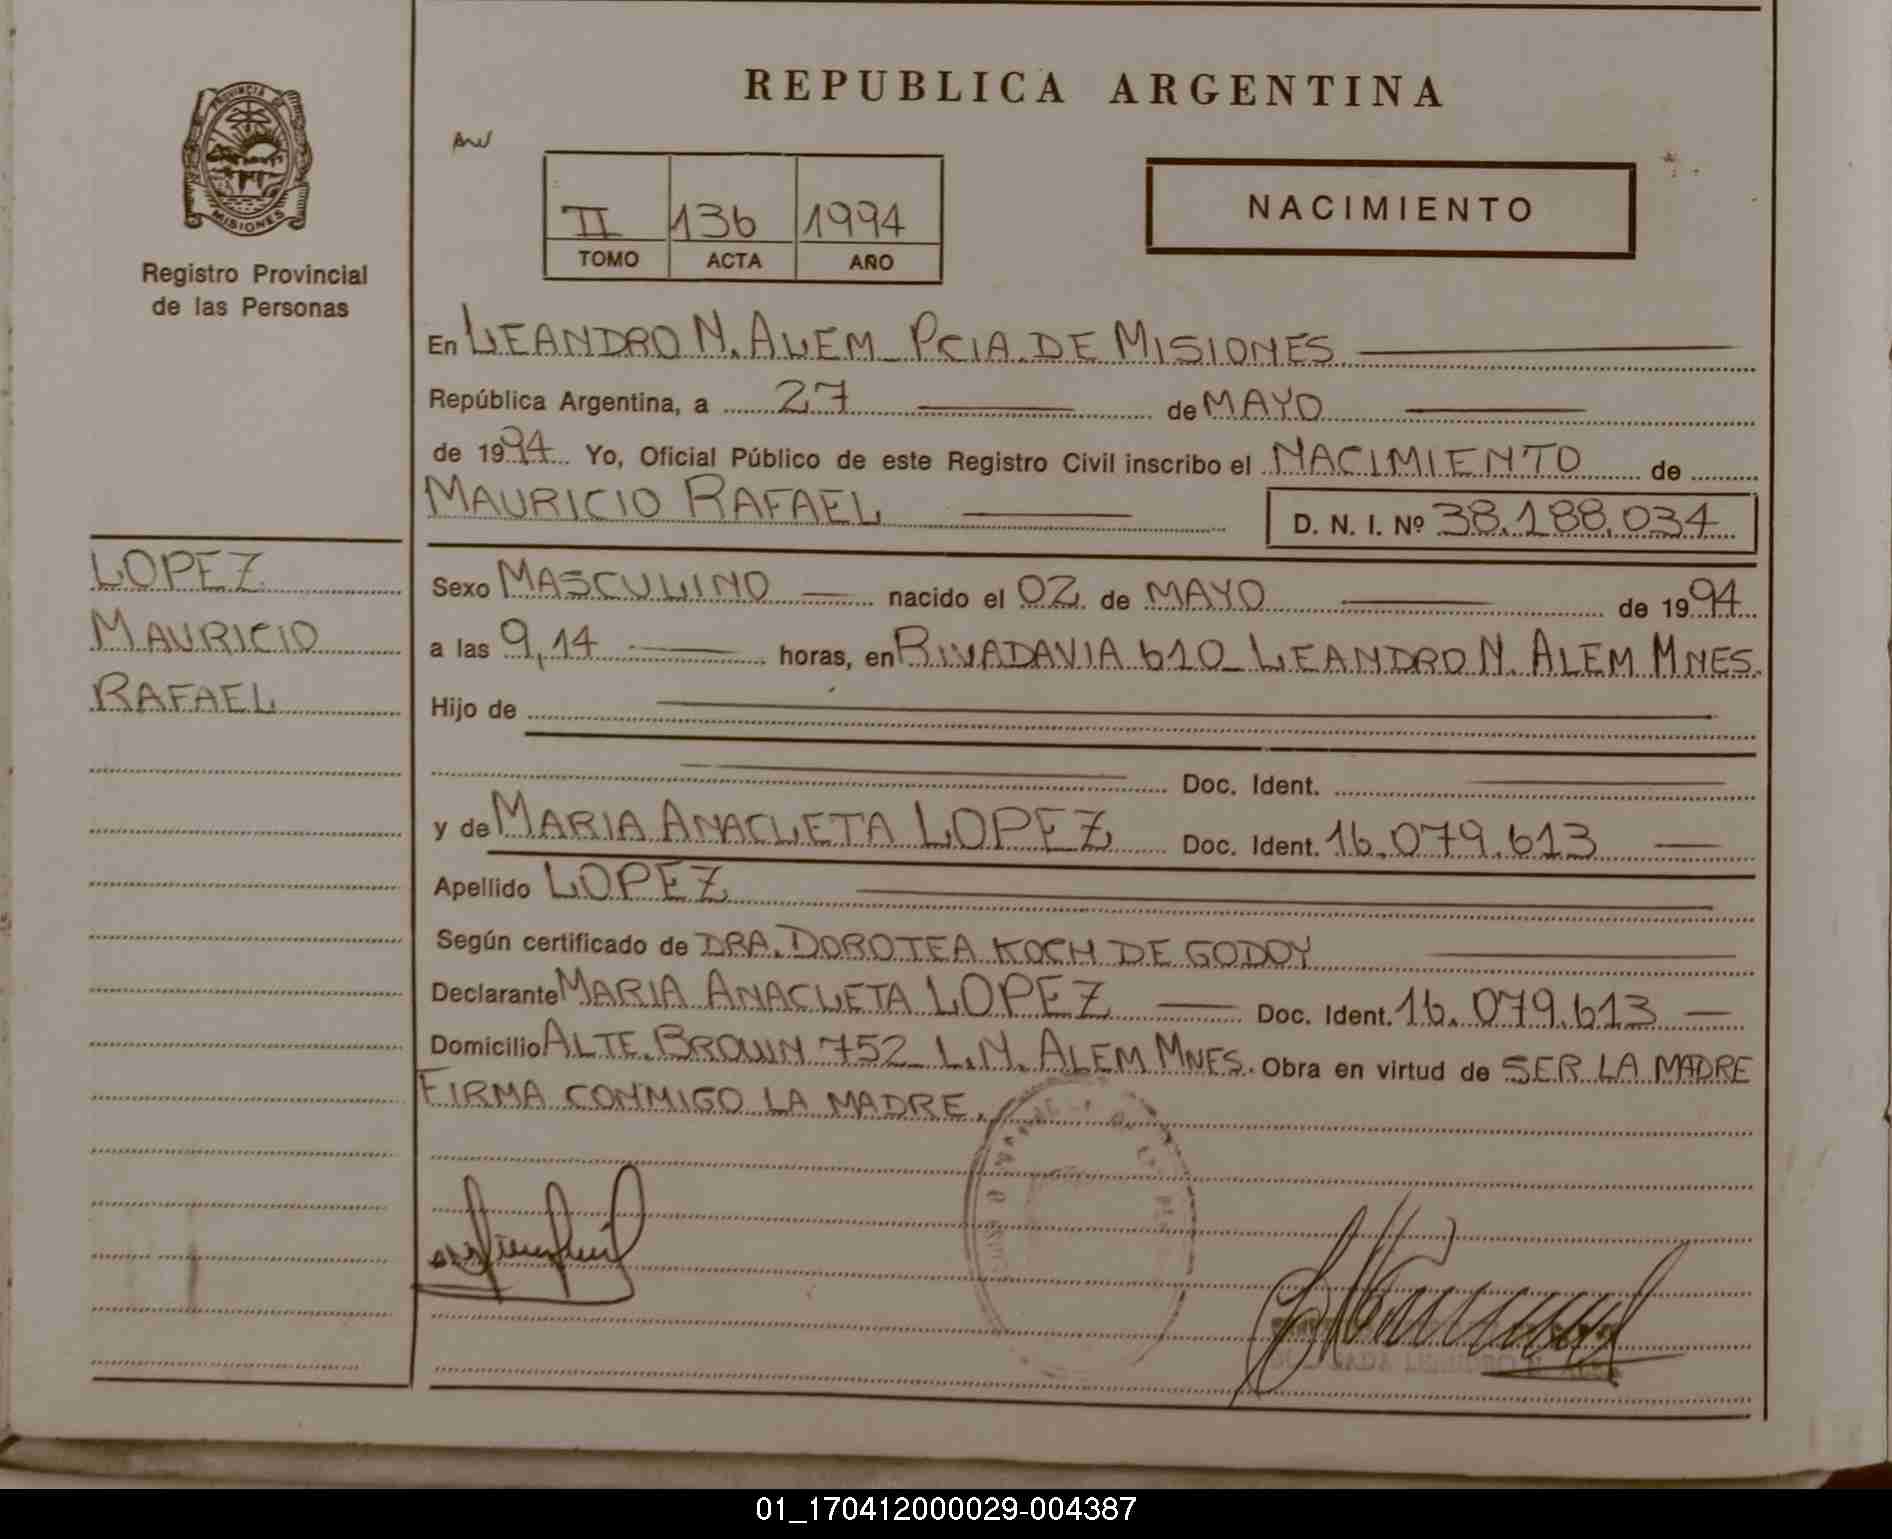 REPUBLICA ARGENTINA
PROVINCIA DE
MISIONES
Registro Provincial
de las Personas
II 136 1994
TOMO ACTA AÑO
NACIMIENTO
En LEANDRO N. ALEM - PCIA. DE MISIONES
República Argentina, a 27 de MAYO
de 1994 Yo, Oficial Público de este Registro Civil inscribo el NACIMIENTO de
MAURICIO RAFAEL
D. N. I. Nº 38.188.034
LOPEZ
MAURICIO
RAFAEL
Sexo MASCULINO nacido el 02 de MAYO de 1994
a las 9,14 horas, en RIVADAVIA 610 - LEANDRO N. ALEM MNES.
Hijo de
Doc. Ident.
y de MARIA ANACLETA LOPEZ Doc. Ident. 16.079.613
Apellido LOPEZ
Según certificado de DRA. DOROTEA KOCH DE GODOY
Declarante MARIA ANACLETA LOPEZ Doc. Ident. 16.079.613
Domicilio ALTE. BROWN 752 - L.N. ALEM MNES. Obra en virtud de SER LA MADRE
FIRMA CONMIGO LA MADRE.
01_170412000029-004387